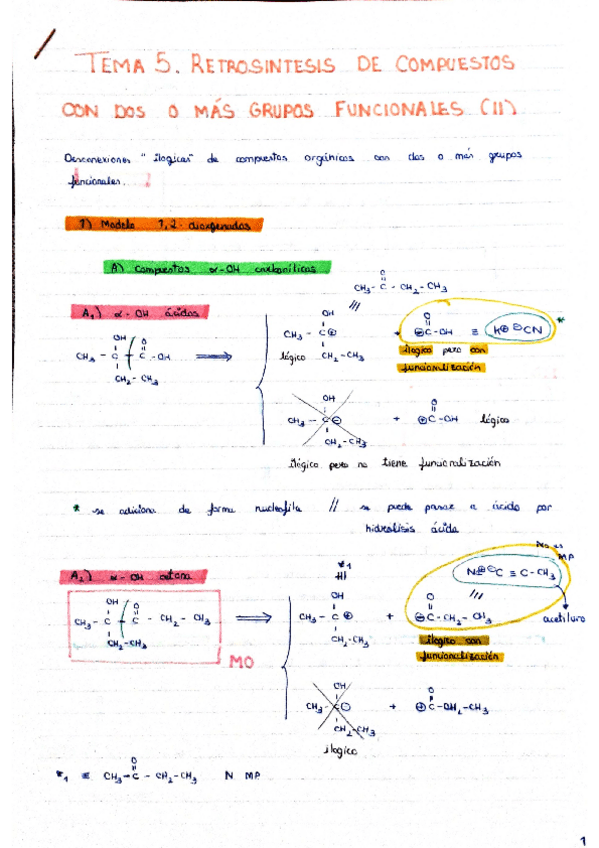 TEMA 5. RETROSINTESIS DE COMPUESTOS
CON DOS O MÁS GRUPOS FUNCIONALES (II)
Desconexiones "ilogicas" de compuestos orgánicos con dos o más grupos
funcionales.
1) Modelo 1,2-dioxigenados
A) Compuestos α-OH carbonílicos
O
CH3-C-CH2-CH3
A1) α-OH ácidos
OH
CH3-C⊕
CH2-CH3
lógico
+
O
⊕C-OH ≡ K⊕ ⊖CN *
ilogico pero con
funcionalización
OH O
CH3-C-C-OH
CH2-CH3
OH
CH3-C⊖
CH2-CH3
+
O
⊕C-OH lógico
ilógico pero no tiene funcionalización
* se adiciona de forma nucleofila // se puede pasar a ácido por
hidrolisis ácida
MP
A2) α-OH cetona
*1
⊕ ⊖C≡C-CH3
acetiluro
OH O
CH3-C-C-CH2-CH3
CH2-CH3
MO
OH
CH3-C⊕
CH2-CH3
+
O
⊖C-CH2-CH3
ilogico con
funcionalización
OH
CH3-C⊖
CH2-CH3
ilogico
+
O
⊕C-CH2-CH3
*1 ≡ CH3-C-CH2-CH3 N MP
O
1